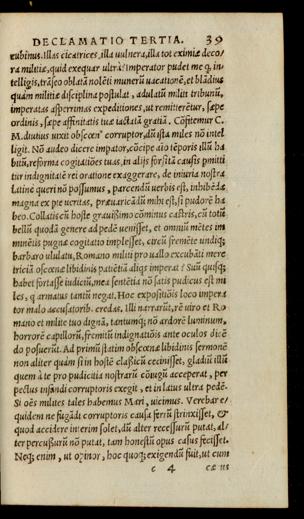 DECLAMATIO TERTIA. 39
rubinus. illas cicatrices, illa uulnera, illa tot eximiæ deco/
ra militiæ, quid exequar ultrà? Imperator pudet me q̃, in/
telligis, trãseo oblatã nolẽti munerũ uacationẽ, et blãdius
quàm militiæ disciplina postulat, adulatũ militi tribunũ,
imperatas asperrimas expeditiones, ut remitterẽtur, sæpe
ordinis, sæpe affinitatis tuæ iactatã gratiã. Cõfitemur C.
M. diutius uixit obscœn⁹ corruptor, dũ ista miles nõ intel
ligit. Nõ audeo dicere imperator, cõcipe aĩo tẽporis illũ ha
bitũ, reforma cogitatiões tuas, in alijs forsitã causis p̃mitti
tur indignitatẽ rei oratione exaggerare, de iniuria nostra
latinè queri nõ possumus, parcendũ uerbis est, inhibẽda
magna ex pte ueritas, præuaricãdũ mihi est, si pudorẽ ha
beo. Collatis cũ hoste grauißimo cõminus castris, cũ totũ
bellũ quodã genere ad pedẽ uenisset, et omniũ mẽtes im
minẽtis pugnæ cogitatio implesset, circũ fremẽte undiq;
barbaro ululatu, Romano militi pro uallo excubãti mere
triciã obscœnæ libidinis patiẽtiã aliqs imperat? Suũ quisq;
habet fortasse iudiciũ, mea sentẽtia nõ satis pudicus est mi
les, q armatus tantũ negat. Hoc expositiõis loco impera
tor malo accusatorib. credas. Illi narrarũt, rẽ uiro et Ro
mano et milite tuo dignã, tantumq; nõ ardorẽ luminum,
horrorẽ capillorũ, fremitũ indignatiõis ante oculos dicẽ
do posuerũt. Ad primũ statim obscœnæ libidinis sermonẽ
non aliter quàm si in hostẽ classicũ cecinisset, gladiũ illũ
quem à te pro pudicitia nostrarũ coniugũ acceperat, per
pectus infandi corruptoris exegit, et in latus ultra pedẽ.
Si oẽs milites tales habemus Mari, uicimus. Verebar e/
quidem ne fugãdi corruptoris causa ferrũ strinxisset, &
quod accidere interim solet, dũ alter recessurũ putat, al/
ter percußurũ nõ putat, tam honestũ opus casus fecisset.
Neq; enim, ut opinor, hoc quoq; exigendũ fuit, ut cum
c 4 cæ us